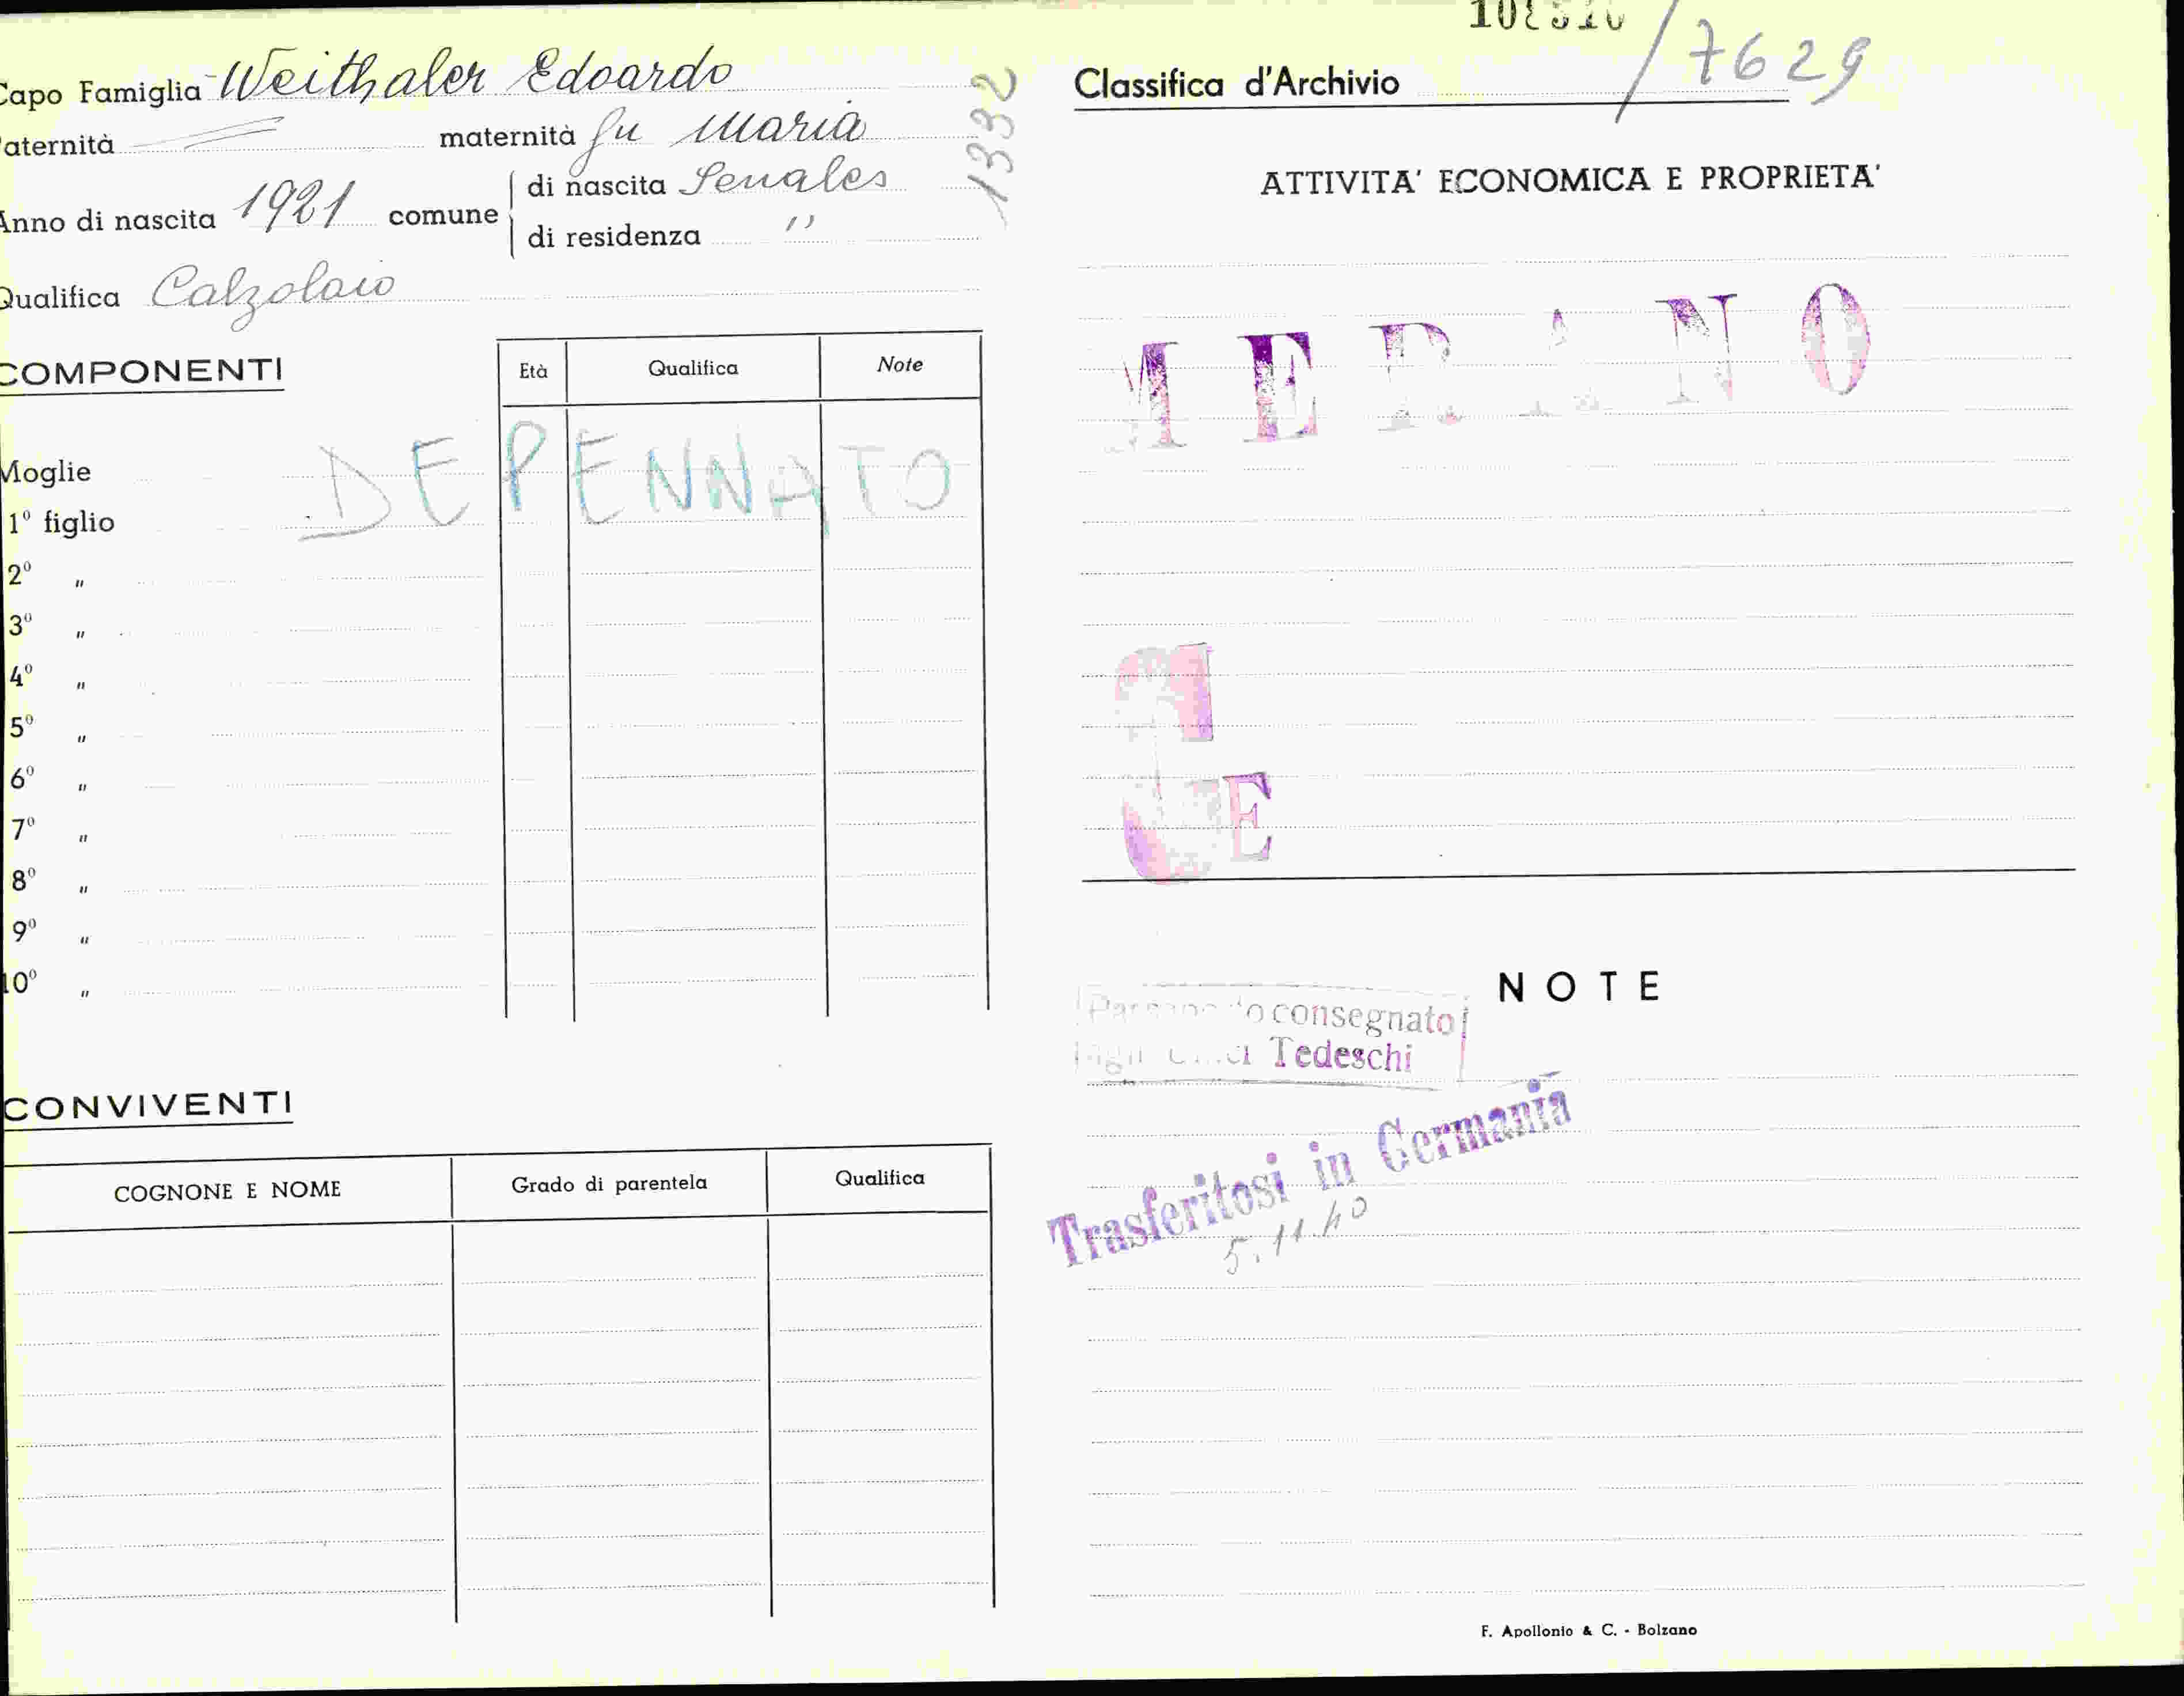 Capo Famiglia Weithaler Edoardo
Paternità maternità fu Maria
Anno di nascita 1921 comune di nascita Senales
di residenza "
Qualifica Calzolaio
1332
COMPONENTI
Età Qualifica Note
DEPENNATO
Moglie
1º figlio
2º "
3º "
4º "
5º "
6º "
7º "
8º "
9º "
10º "
CONVIVENTI
COGNONE E NOME Grado di parentela Qualifica
/7629
Classifica d'Archivio
ATTIVITA' ECONOMICA E PROPRIETA'
MERANO
E
NOTE
consegnato
Tedeschi
Trasferitosi in Germania
5.11.40
F. Apollonio & C. - Bolzano